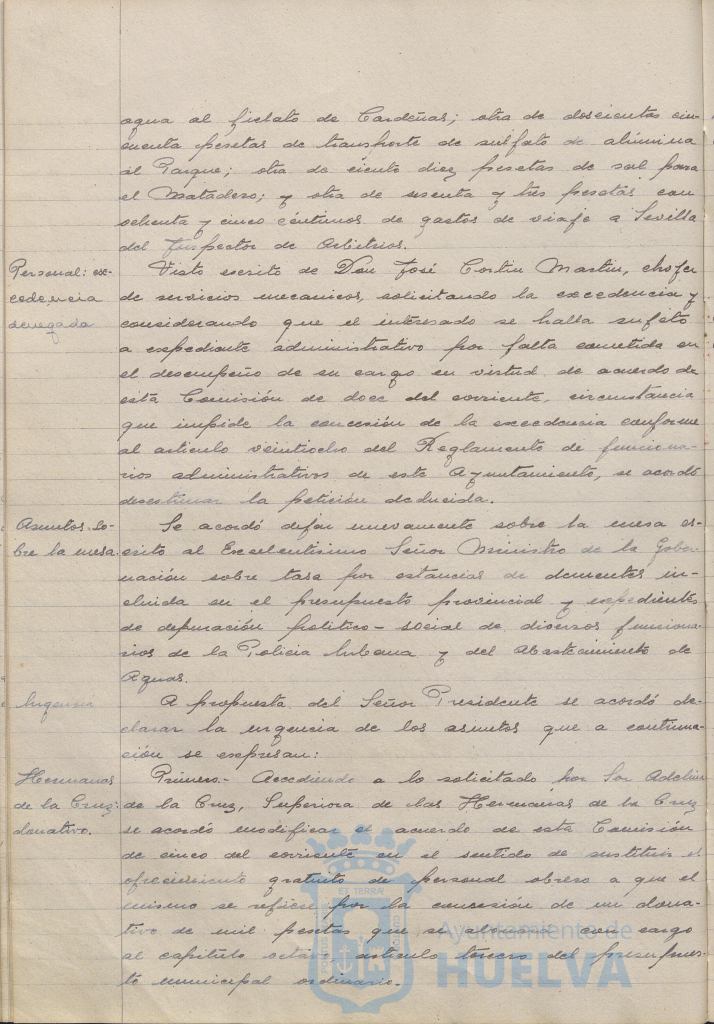 agua al fielato de Cardeñas; otra de doscientas cin-
cuenta pesetas de transporte de sulfato de alúmina
al Parque; otra de ciento diez pesetas de sal para
el Matadero; y otra de sesenta y tres pesetas con
ochenta y cinco céntimos de gastos de viaje a Sevilla
del Inspector de Arbitrios.
Personal: ex-
cedencia
denegada
Visto escrito de Don José Cortin Martin, chofer
de servicios mecanicos, solicitando la excedencia y
considerando que el interesado se halla sujeto
a expediente administrativo por falta cometida en
el desempeño de su cargo en virtud de acuerdo de
esta Comisión de doce del corriente, circunstancia
que impide la concesión de la excedencia conforme
al articulo veintiocho del Reglamento de funciona-
rios administrativos de este Ayuntamiento, se acordó
desestimar la petición deducida.
Asuntos so-
bre la mesa.
Se acordó dejar nuevamente sobre la mesa es-
crito al Excelentísimo Señor Ministro de la Gober-
nación sobre tasa por estancias de dementes in-
cluida en el presupuesto provincial y expedientes
de depuración politico-social de diversos funciona-
rios de la Policia Urbana y del Abastecimiento de
Aguas.
Urgencia
A propuesta del Señor Presidente se acordó de-
clarar la urgencia de los asuntos que a continua-
ción se expresan:
Hermanas
de la Cruz:
donativo.
Primero.- Accediendo a lo solicitado por Sor Adelina
de la Cruz, Superiora de las Hermanas de la Cruz
se acordó modificar el acuerdo de esta Comisión
de cinco del corriente en el sentido de sustituir el
ofrecimiento gratuito de personal obrero a que el
mismo se refiere por la concesión de un dona-
tivo de mil pesetas que se abonará con cargo
al capitulo octavo, articulo tercero del presupues-
to municipal ordinario.
Ayuntamiento de
HUELVA